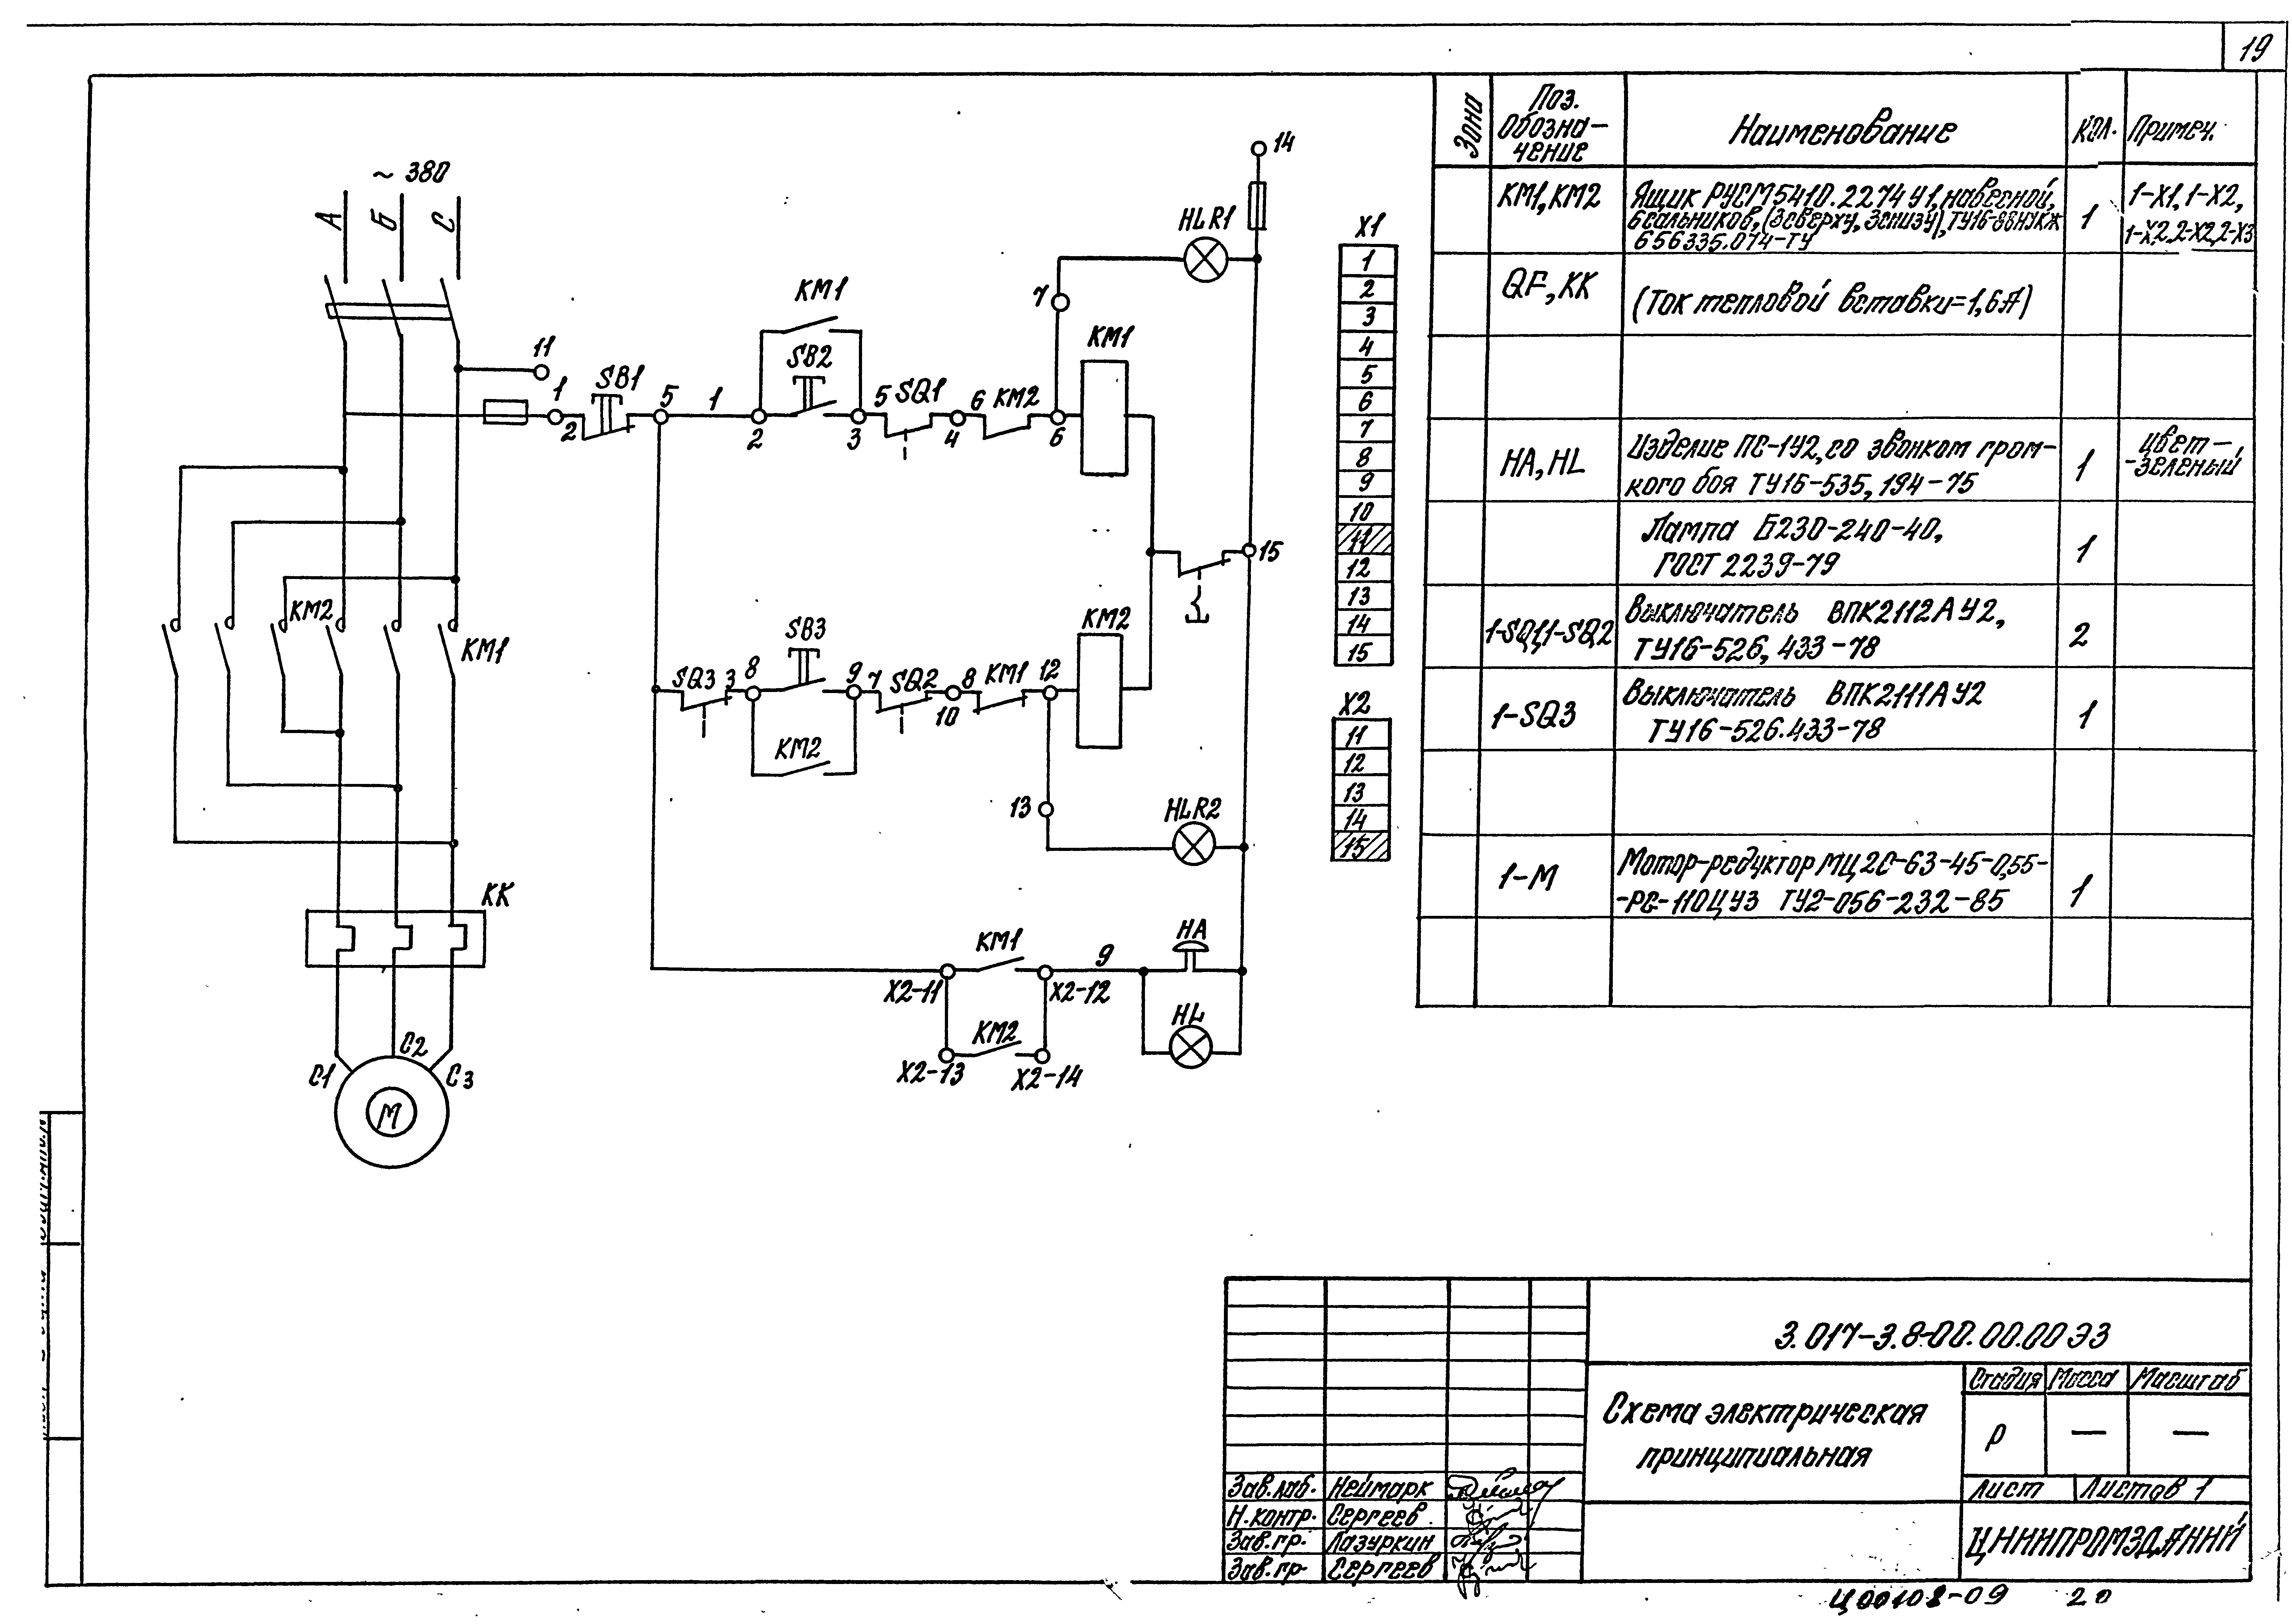 19
~ 380
А
Б
С
11
1
2
SB1
5
1
КМ1
SB2
2
3
5
SQ1
4
6
КМ2
6
7
HLR1
КМ1
14
15
SQ3
3
8
SB3
9
7
SQ2
10
8
КМ1
12
КМ2
КМ2
13
HLR2
КМ2
КМ1
КК
С1
С2
С3
М
Х2-11
КМ1
Х2-12
9
НА
Х2-13
КМ2
Х2-14
HL
Х1
1
2
3
4
5
6
7
8
9
10
11
12
13
14
15
Х2
11
12
13
14
15
Зона
Поз. Обозна-
чение
Наименование
Кол.
Примеч.
КМ1, КМ2
Ящик РУСМ5410.2274У1, навесной,
6сальников, (3сверху, 3снизу), ТУ16-88ИУКЖ
656335.074-ТУ
1
1-Х1, 1-Х2,
1-Х2, 2-Х2, 2-Х3
QF, КК
(Ток тепловой вставки=1,6А)
НА, HL
Изделие ПС-1У2, со звонком гром-
кого боя ТУ16-535, 194-75
1
цвет-
-зеленый
Лампа Б230-240-40,
ГОСТ 2239-79
1
1-SQ1,1-SQ2
Выключатель ВПК2112АУ2,
ТУ16-526, 433-78
2
1-SQ3
Выключатель ВПК2111АУ2
ТУ16-526.433-78
1
1-М
Мотор-редуктор МЦ2С-63-45-0,55-
-РС-110ЦУ3 ТУ2-056-232-85
1
3.017-3.8-00.00.00Э3
Схема электрическая
принципиальная
Стадия
Масса
Масштаб
Р
—
—
Лист
Листов 1
ЦНИИПРОМЗДАНИЙ
Зав.лаб. Неймарк
Н.контр. Сергеев
Зав.гр. Лазуркин
Зав.гр. Сергеев
Ц00108-09 20